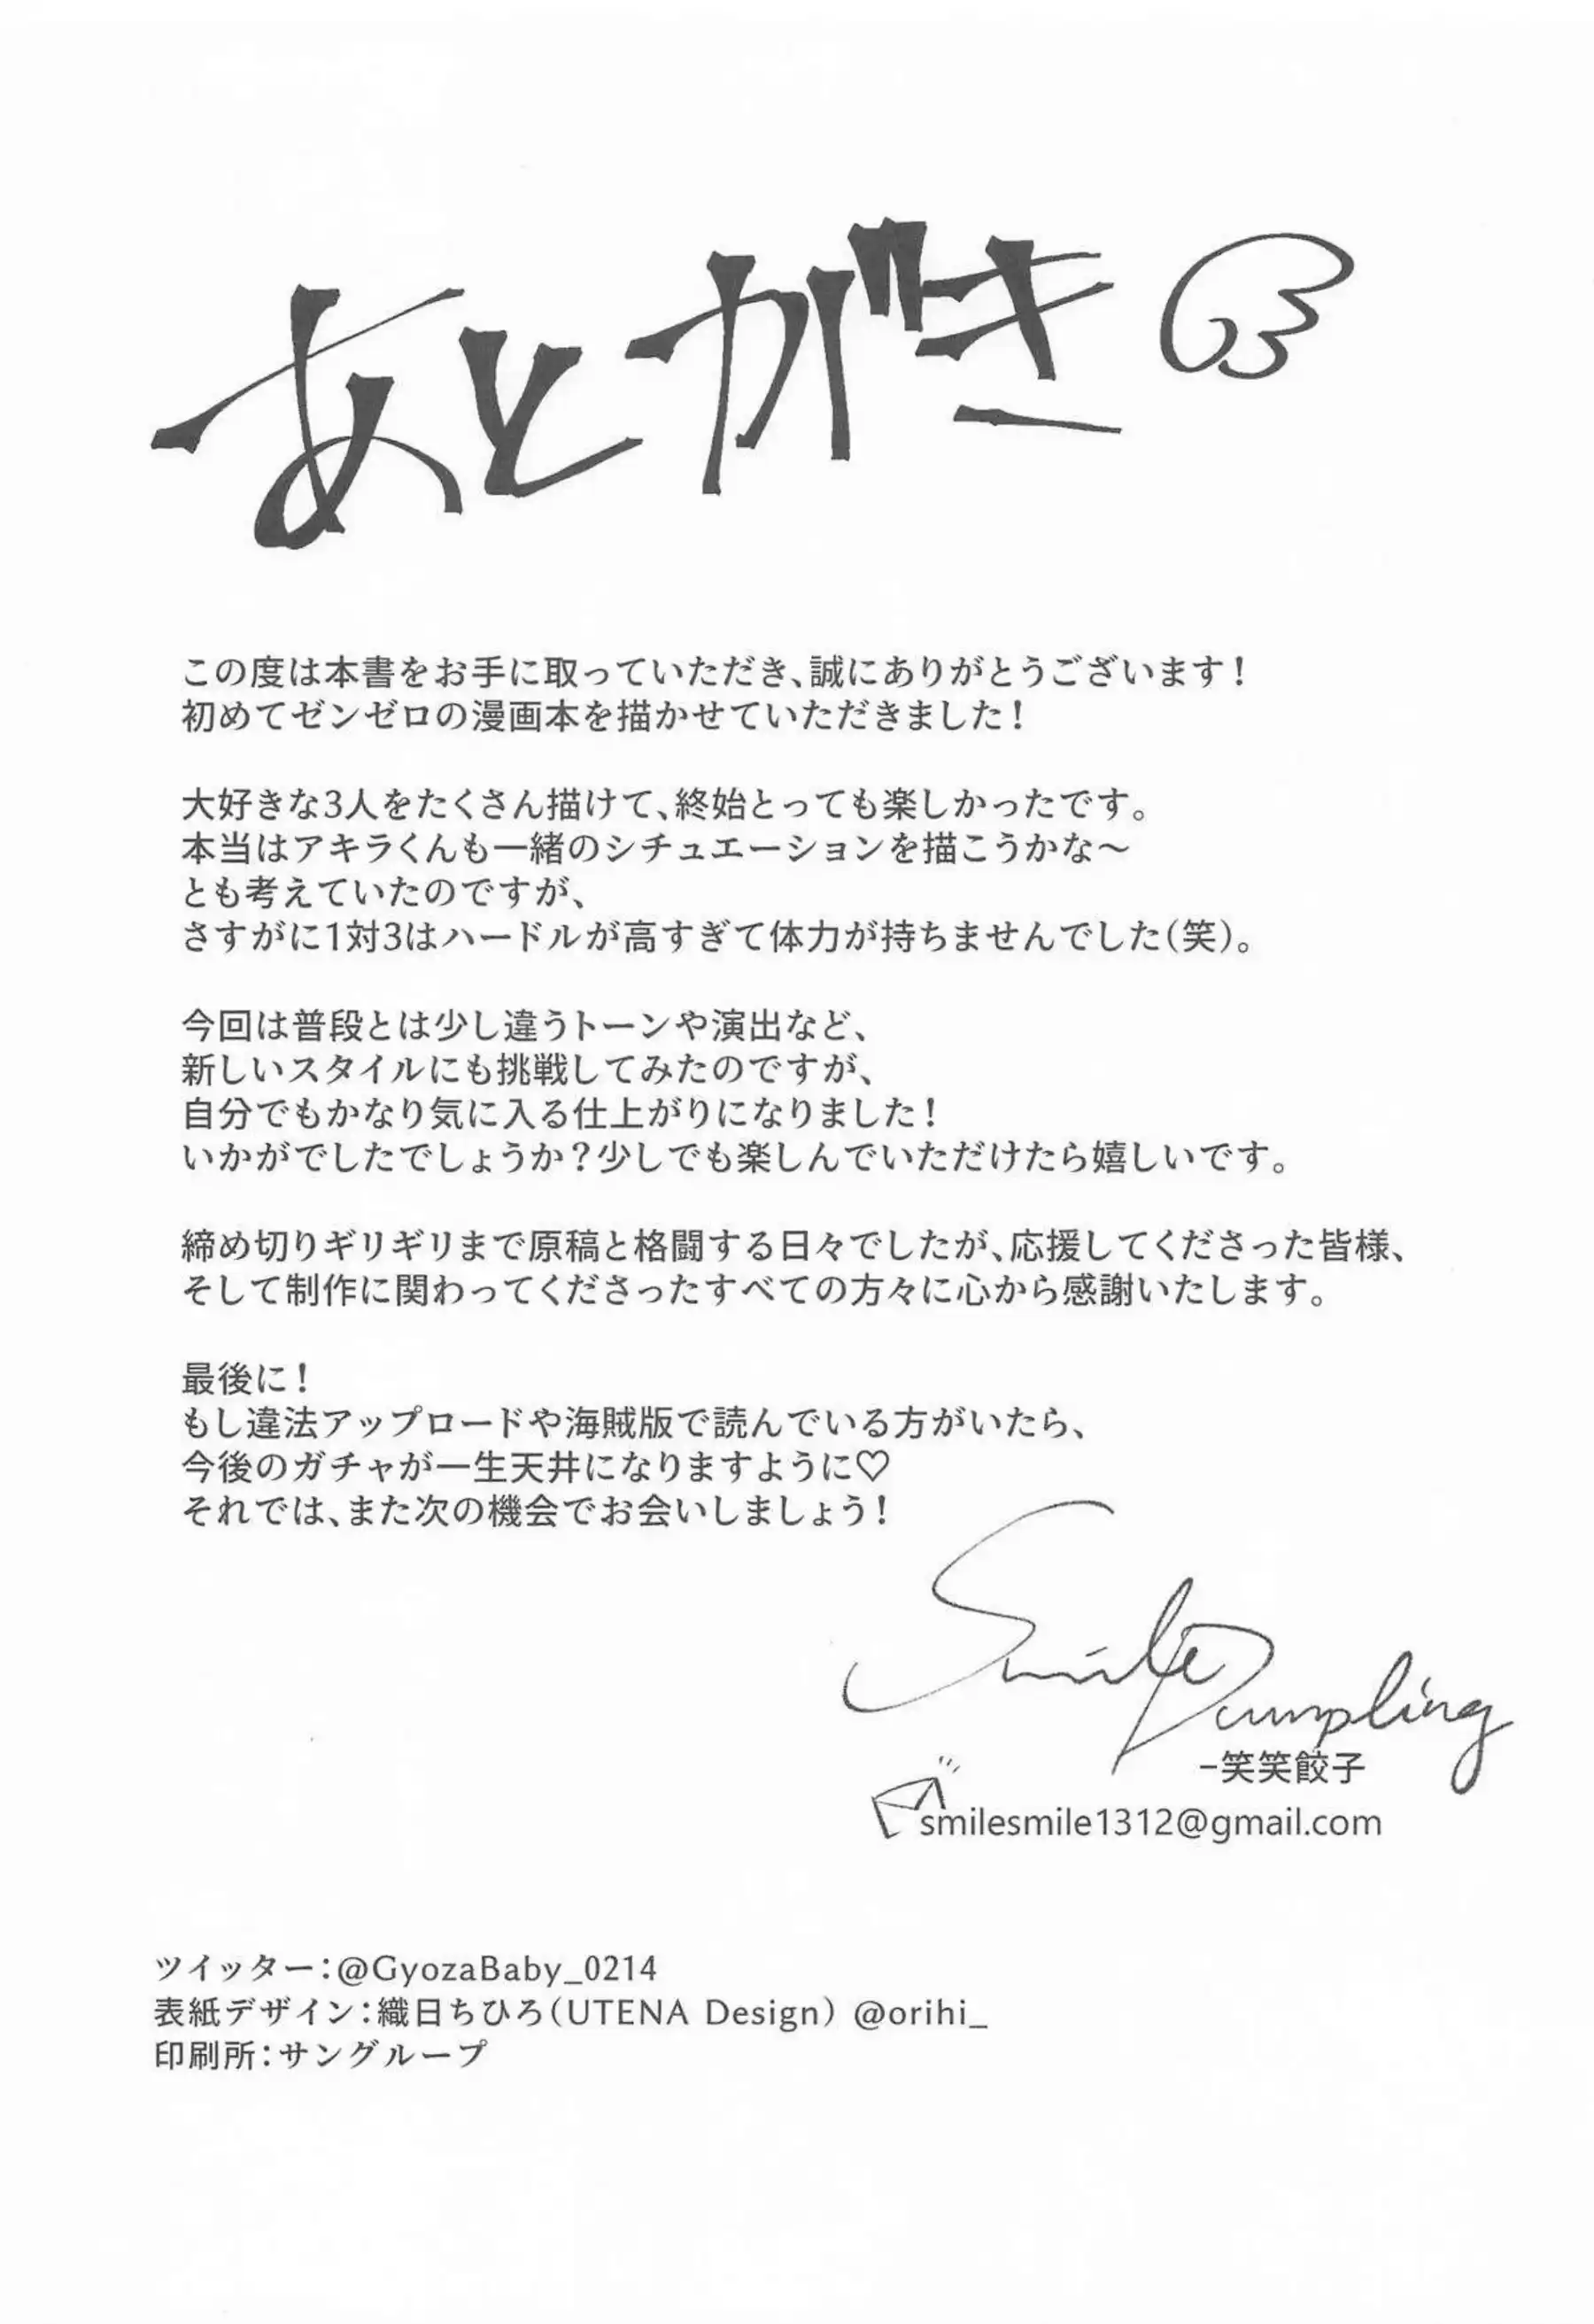 あとがき
この度は本書をお手に取っていただき、誠にありがとうございます！
初めてゼンゼロの漫画本を描かせていただきました！
大好きな3人をたくさん描けて、終始とっても楽しかったです。
本当はアキラくんも一緒のシチュエーションを描こうかな～
とも考えていたのですが、
さすがに1対3はハードルが高すぎて体力が持ちませんでした（笑）。
今回は普段とは少し違うトーンや演出など、
新しいスタイルにも挑戦してみたのですが、
自分でもかなり気に入る仕上がりになりました！
いかがでしたでしょうか？少しでも楽しんでいただけたら嬉しいです。
締め切りギリギリまで原稿と格闘する日々でしたが、応援してくださった皆様、
そして制作に関わってくださったすべての方々に心から感謝いたします。
最後に！
もし違法アップロードや海賊版で読んでいる方がいたら、
今後のガチャが一生天井になりますように♡
それでは、また次の機会でお会いしましょう！
Smile Dumpling
−笑笑餃子
smilesmile1312@gmail.com
ツイッター：@GyozaBaby_0214
表紙デザイン：織日ちひろ（UTENA Design） @orihi_
印刷所：サングループ